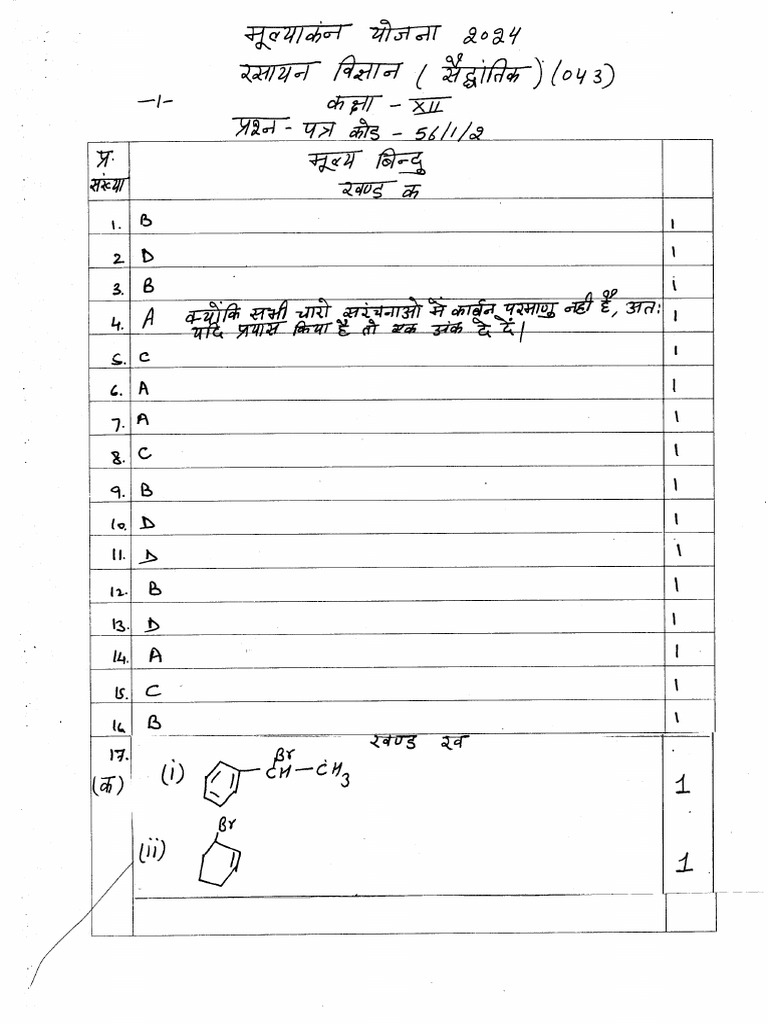 मूल्याकंन योजना 2024
रसायन विज्ञान (सैद्धांतिक) (043)
-1- कक्षा - XII
प्रश्न - पत्र कोड - 56/1/2
प्र. संख्या मूल्य बिन्दु
खण्ड क
1. B 1
2 D 1
3. B 1
4. A क्योंकि सभी चारो सरंचनाओ में कार्बन परमाणु नही है, अतः 1
यदि प्रयास किया है तो एक अंक दे दें।
5. C 1
6. A 1
7. A 1
8. C 1
9. B 1
10. D 1
11. D 1
12. B 1
13. D 1
14. A 1
15. C 1
16 B 1
खण्ड ख
17.
(क) (i) Br
CH-CH3 1
Br
(ii) 1